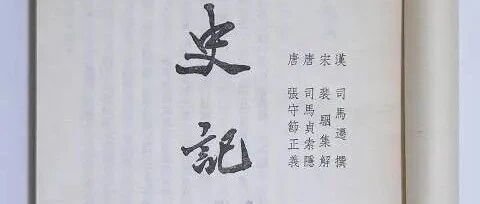 史記
漢 司馬遷 撰
宋 裴駰 集解
唐 司馬貞 索隱
唐 張守節 正義